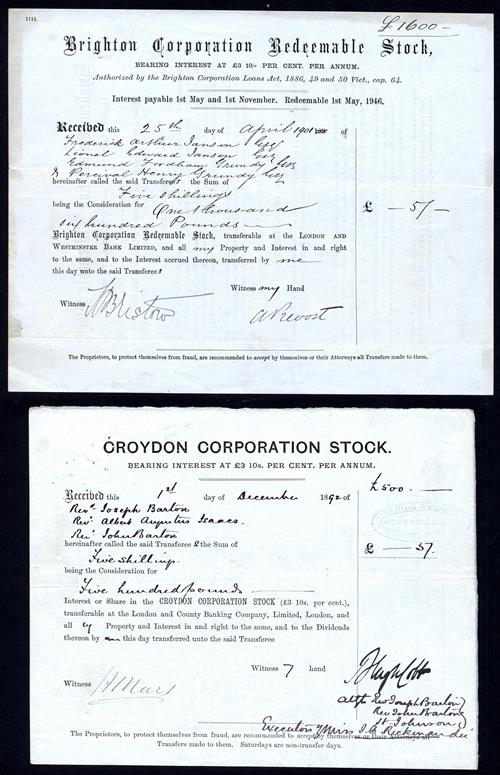 1115.
£1600 —
Brighton Corporation Redeemable Stock,
BEARING INTEREST AT £3 10/- PER CENT. PER ANNUM.
Authorized by the Brighton Corporation Loans Act, 1886, 49 and 50 Vict., cap. 64.
Interest payable 1st May and 1st November. Redeemable 1st May, 1946.
Received this 25th day of April 1901 of
Frederick Arthur Janson Esq
Lionel Edward Janson Esq
Edmund Fordham Grundy Esq
& Percival Henry Grundy Esq
hereinafter called the said Transferees the Sum of
Five Shillings
being the Consideration for One thousand
six hundred Pounds
£ — 5/-
Brighton Corporation Redeemable Stock, transferable at the LONDON AND
WESTMINSTER BANK LIMITED, and all my Property and Interest in and right
to the same, and to the Interest accrued thereon, transferred by me
this day unto the said Transferees
Witness my Hand
Witness Bristow
A Prevost
The Proprietors, to protect themselves from fraud, are recommended to accept by themselves or their Attorneys all Transfers made to them.
CROYDON CORPORATION STOCK.
BEARING INTEREST AT £3 10s. PER CENT. PER ANNUM.
Received this 1st day of December 1892 of
£500. —
Revd. Joseph Barton
Revd. Albert Augustus Isaacs
Revd. John Barton
hereinafter called the said Transferees the Sum of
£ — 5/.
Five shillings
being the Consideration for
Five hundred pounds
Interest or Share in the CROYDON CORPORATION STOCK (£3 10s. per cent.),
transferable at the London and County Banking Company, Limited, London, and
all my Property and Interest in and right to the same, and to the Dividends
thereon by me this day transferred unto the said Transferee
Witness my hand
Witness
Att of Rev Joseph Barton
Rev John Barton
St. Johnson
Executors of Miss
The Proprietors, to protect themselves from fraud, are recommended to accept by themselves or their Attorneys all
Transfers made to them. Saturdays are non-transfer days.